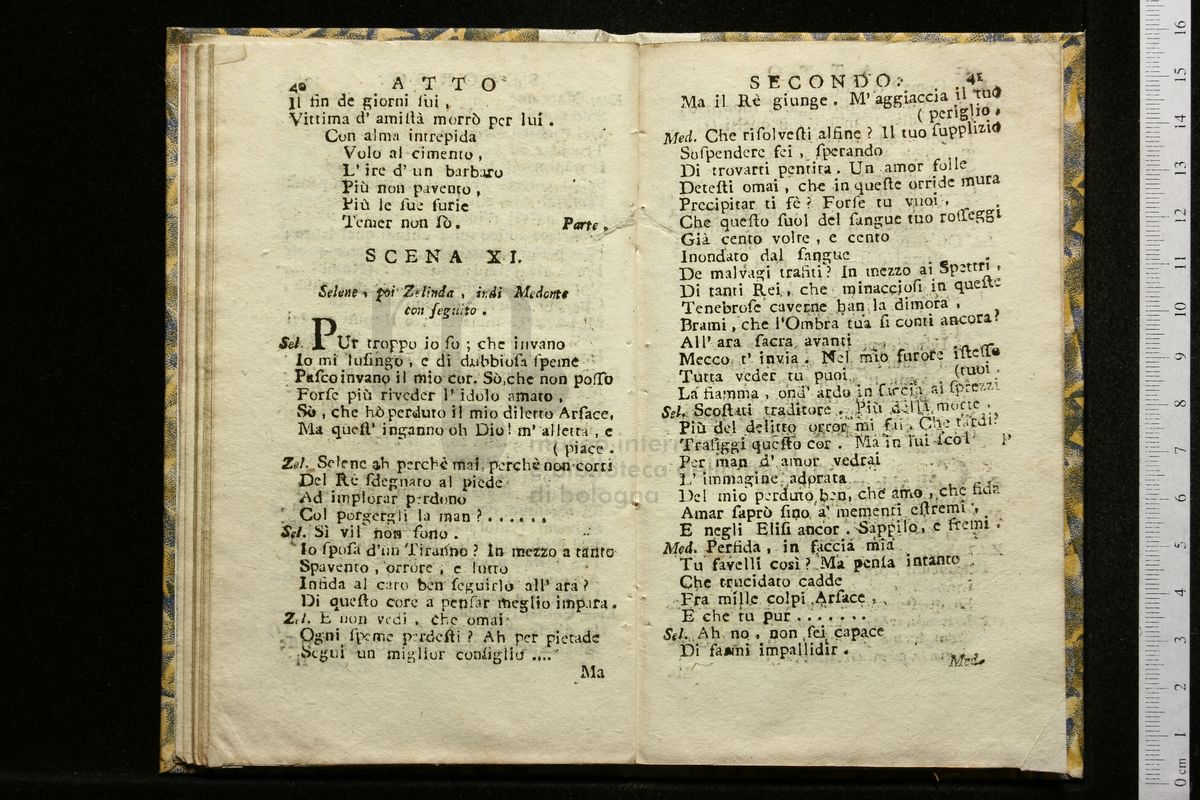 40 ATTO
Il fin de giorni ſui,
Vittima d' amiſtà morrò per lui.
Con alma intrepida
Volo al cimento,
L' ire d' un barbaro
Più non pavento,
Più le ſue furie
Temer non ſò. Parte.
SCENA XI.
Selene, poi Zelinda, indi Medonte
con ſeguito.
Sel. PUr troppo io ſo; che invano
Io mi luſingo, e di dubbioſa ſpeme
Paſco invano il mio cor. Sò, che non poſſo
Forſe più riveder l' idolo amato,
Sò, che hò perduto il mio diletto Arſace,
Ma queſt' inganno oh Dio! m' alletta, e
( piace.
Zel. Selene ah perchè mai, perchè non corri
Del Rè ſdegnato al piede
Ad implorar perdono
Col porgergli la man? . . . . . .
Sel. Sì vil non ſono.
Io ſpoſa d'un Tiranno? In mezzo a tanto
Spavento, orrore, e lutto
Infida al caro ben ſeguirlo all' ara?
Di queſto core a penſar meglio impara.
Zel. E non vedi, che omai
Ogni ſpeme perdeſti? Ah per pietade
Segui un miglior conſiglio ....
Ma
SECONDO. 41
Ma il Rè giunge. M' aggiaccia il tuo
( periglio.
Med. Che riſolveſti alfine? Il tuo ſupplizio
Soſpendere fei, ſperando
Di trovarti pentita. Un amor folle
Deteſti omai, che in queſte orride mura
Precipitar ti fè? Forſe tu vuoi,
Che queſto ſuol del ſangue tuo roſſeggi
Già cento volte, e cento
Inondato dal ſangue
De malvagi trafiti? In mezzo ai Spettri,
Di tanti Rei, che minaccioſi in queſte
Tenebroſe caverne han la dimora,
Brami, che l'Ombra tua ſi conti ancora?
All' ara ſacra avanti
Mecco t' invia. Nel mio furore iſteſſo
Tutta veder tu puoi (tuoi.
La fiamma, ond' ardo in faccia ai ſprezzi
Sel. Scoſtati traditore. Più della morte.
Più del delitto orror mi fai. Che tardi?
Trafiggi queſto cor. Ma in lui ſcol p
Per man d' amor vedrai
L' immagine adorata
Del mio perduto ben, che amo, che fida
Amar ſaprò ſino a' mementi eſtremi,
E negli Eliſi ancor. Sappilo, e fremi.
Med. Perfida, in faccia mia
Tu favelli così? Ma penſa intanto
Che trucidato cadde
Fra mille colpi Arſace,
E che tu pur . . . . . . .
Sel. Ah no, non ſei capace
Di farmi impallidir.
Med.
di bologna